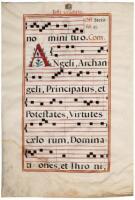 no mini tuo. Com.
Angeli, Archan
geli, Principatus, et
Potestates, Virtutes
cælo rum, Domina
ti ones, et Thro ni.